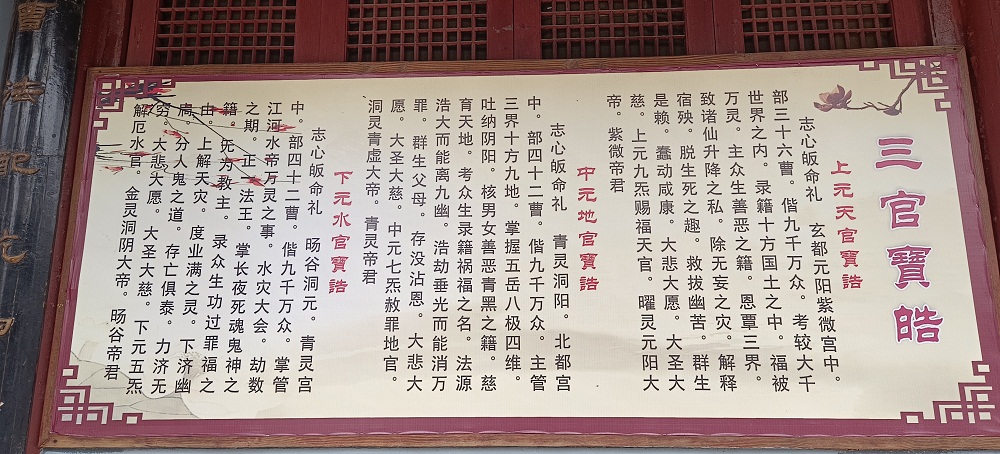 三官寶皓
上元天官寶誥
志心皈命礼　玄都元阳紫微宫中。
部三十六曹。偕九千万众。考较大千
世界之内。录籍十方国土之中。福被
万灵。主众生善恶之籍。恩覃三界。
致诸仙升降之私。除无妄之灾。解释
宿殃。脱生死之趣。救拔幽苦。群生
是赖。蠢动咸康。大悲大愿。大圣大
慈。上元九炁赐福天官。曜灵元阳大
帝。紫微帝君
中元地官寶誥
志心皈命礼　青灵洞阳。北都宫
中。部四十二曹。偕九千万众。主管
三界十方九地。掌握五岳八极四维。
吐纳阴阳。核男女善恶青黑之籍。慈
育天地。考众生录籍祸福之名。法源
浩大而能离九幽。浩劫垂光而能消万
罪。群生父母。存没沾恩。大悲大
愿。大圣大慈。中元七炁赦罪地官。
洞灵青虚大帝。青灵帝君
下元水官寶誥
志心皈命礼　旸谷洞元。青灵宫
中。部四十二曹。偕九千万众。掌管
江河水帝万灵之事。水灾大会。劫数
之期。正一法王。掌长夜死魂鬼神之
籍。无为教主。录众生功过罪福之
由。上解天灾。度业满之灵。下济幽
扃。分人鬼之道。存亡俱泰。力济无
穷。大悲大愿。大圣大慈。下元五炁
解厄水官。金灵洞阴大帝。旸谷帝君